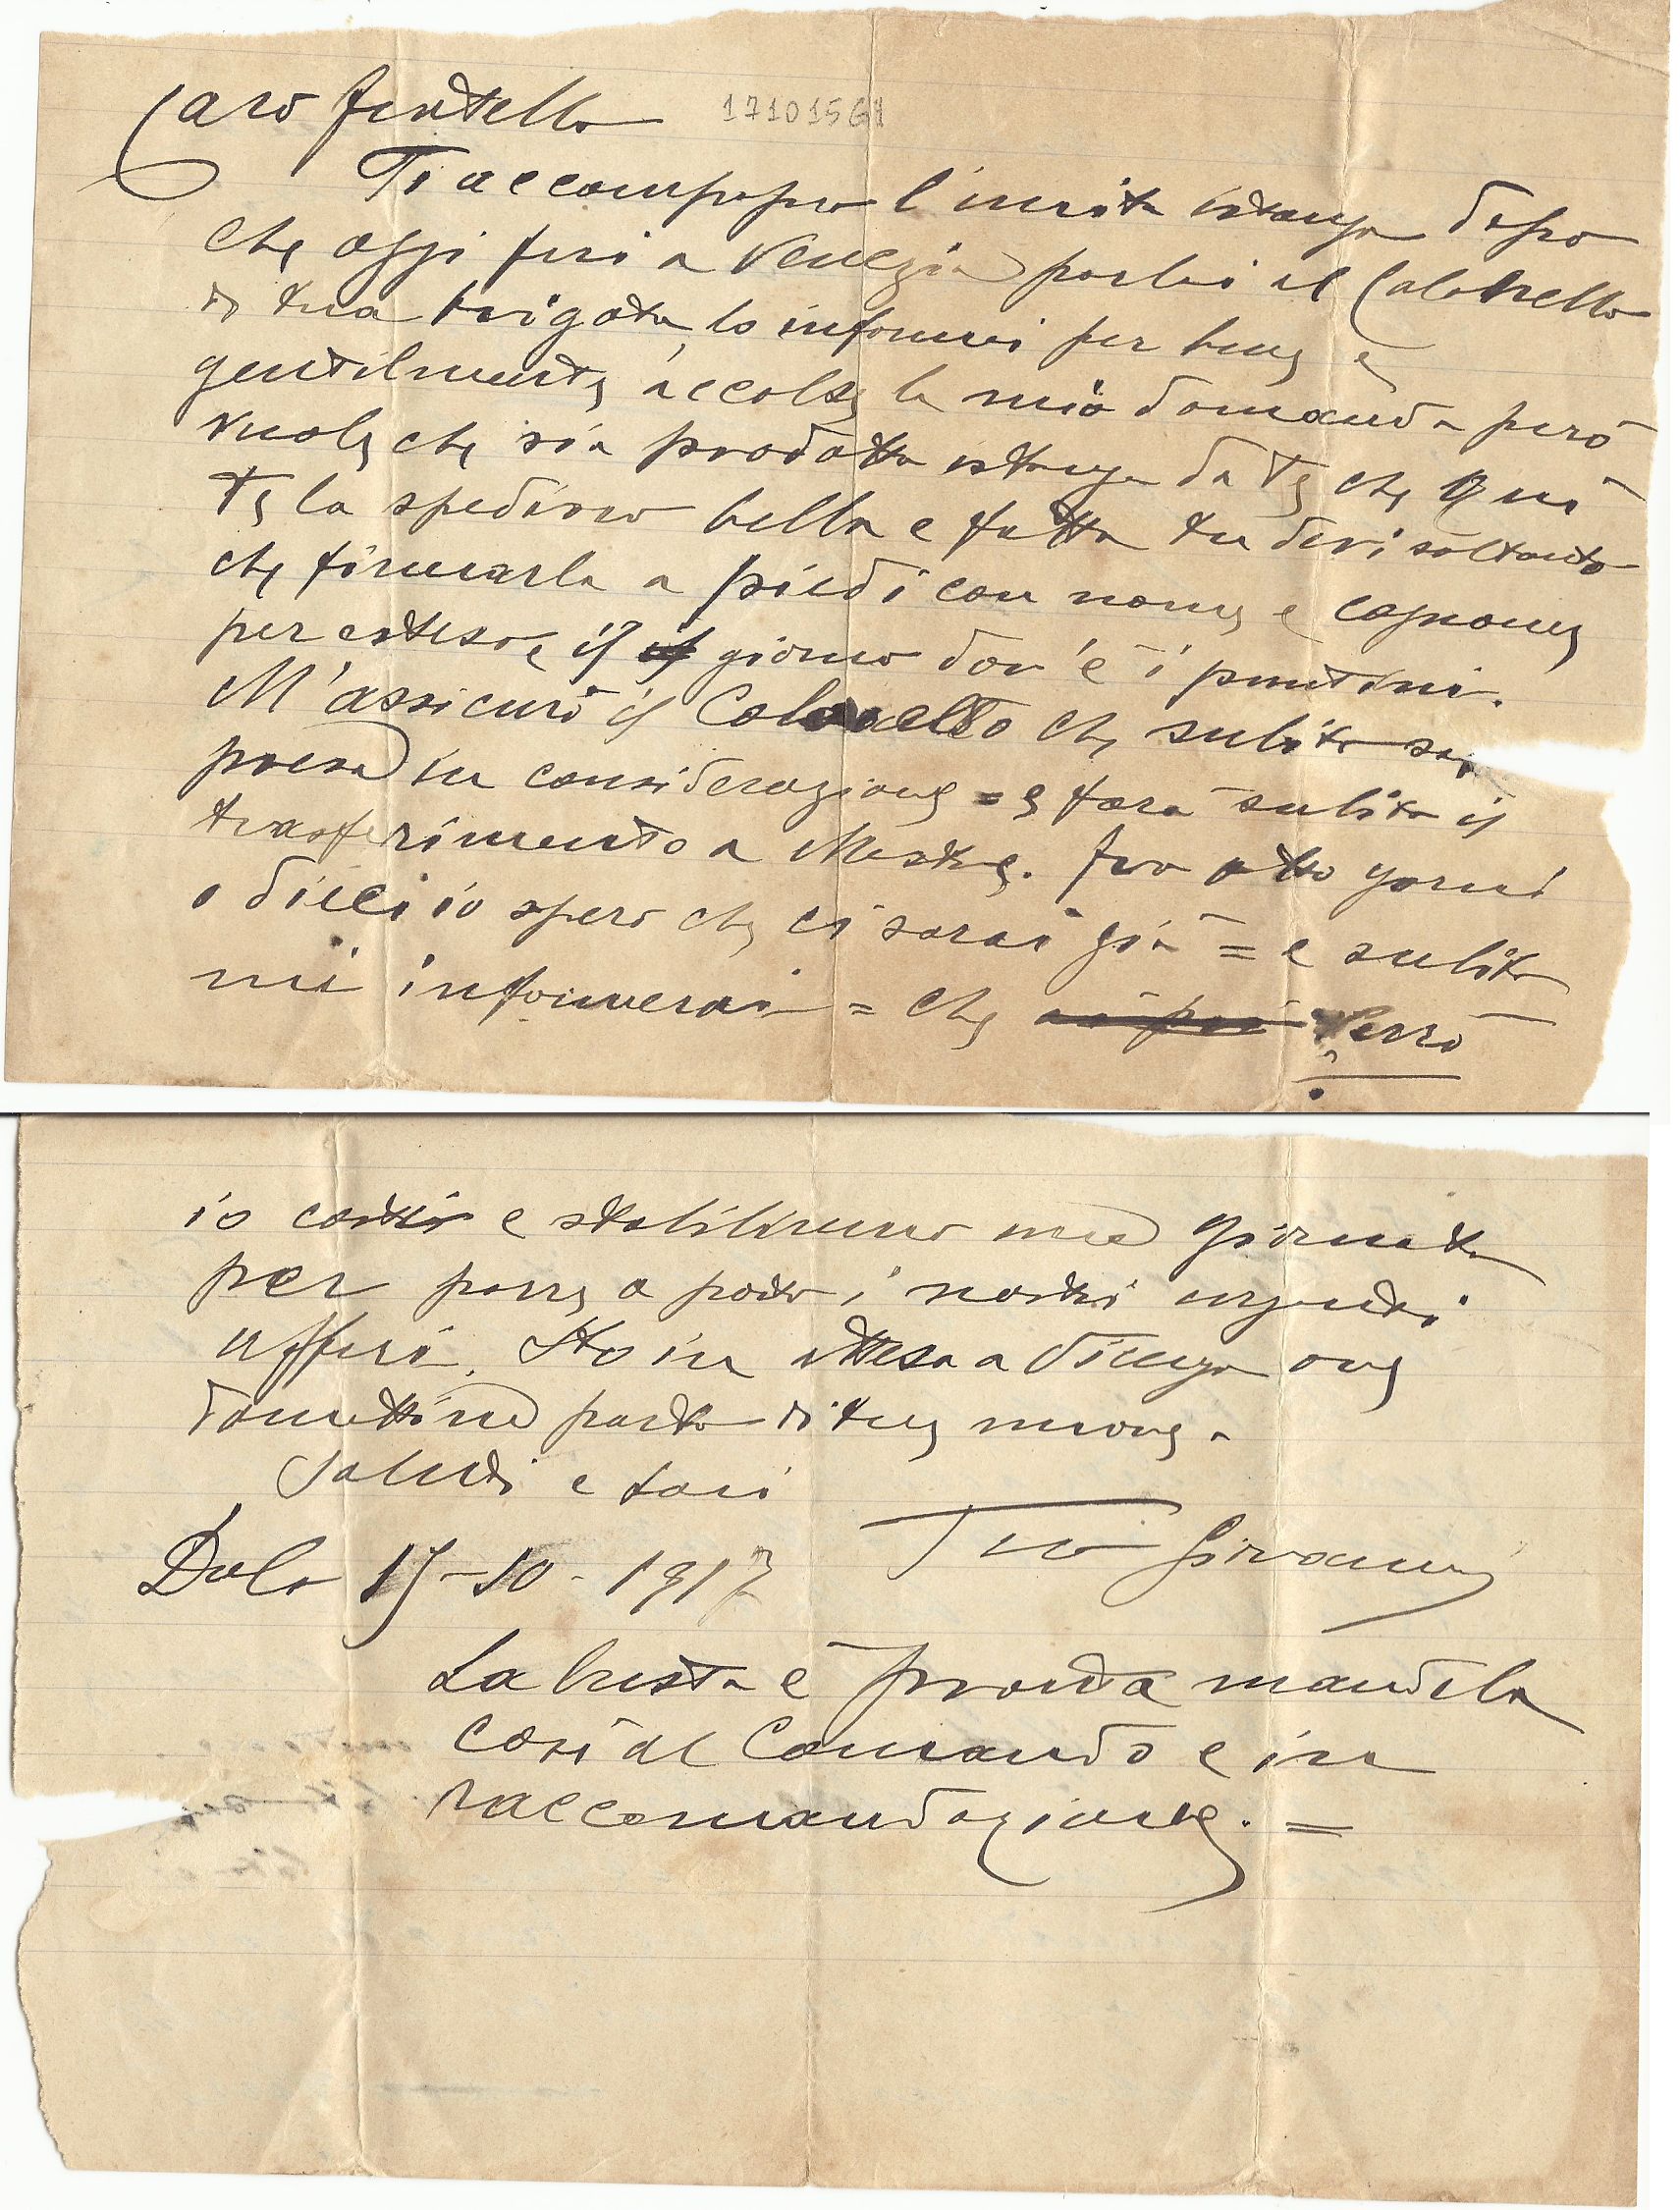 Caro fratello 17101561
Ti accompagno l'unita istanza dopo
che oggi fui a Venezia parlai al Colonello
di tua brigata, lo informai per bene e
gentilmente accolse la mia domanda però
vuole che sia prodotta istanza da te che qui
te la spedisco bella e fatta tu devi soltanto
che firmarla a piedi con nome e cognome
per esteso, e il giorno dov'è i puntini.
M'assicurò il Colonello che subito sarà
presa in considerazione = e farà subito il
trasferimento a Mestre. Fra otto giorni
o dieci io spero che ci sarai già = e subito
mi informerai = che verrò
io costì e stabiliremo una giornata
per porre a posto i nostri urgenti
affari. Sto in attesa a
domattina parto di tue nuove.
Saluti e baci
Dolo 17-10-1917 Tuo Giovanni
La busta è pronta mandela
così al Comando e in
raccomandazione. =